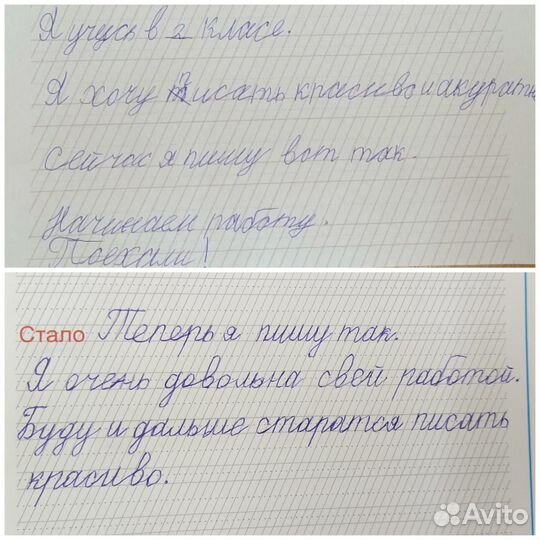 Я учусь в 2 класе.
Я хочу писать красиво и акуратно
Сейчас я пишу вот так.
Начинаем работу.
Поехали!
Стало Теперь я пишу так.
Я очень довольна свей работой.
Буду и дальше старатся писать
красиво.
Avito